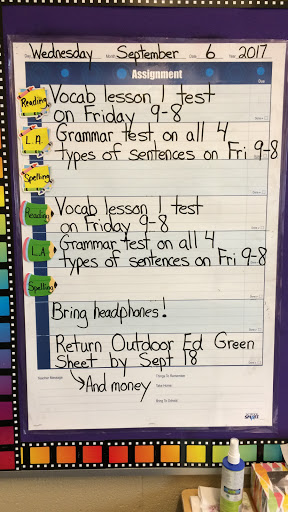 Day Wednesday Month September Date 6 Year 2017
Assignment
Due
Reading Vocab lesson 1 test
on Friday 9-8
L.A. Grammar test on all 4
types of sentences on Fri 9-8
Spelling
Reading Vocab lesson 1 test
on Friday 9-8
L.A. Grammar test on all 4
types of sentences on Fri 9-8
Spelling
Bring headphones!
Return Outdoor Ed Green
Sheet by Sept 18
→And money
Teacher Message:
Things To Remember
Take Home:
Bring To School: